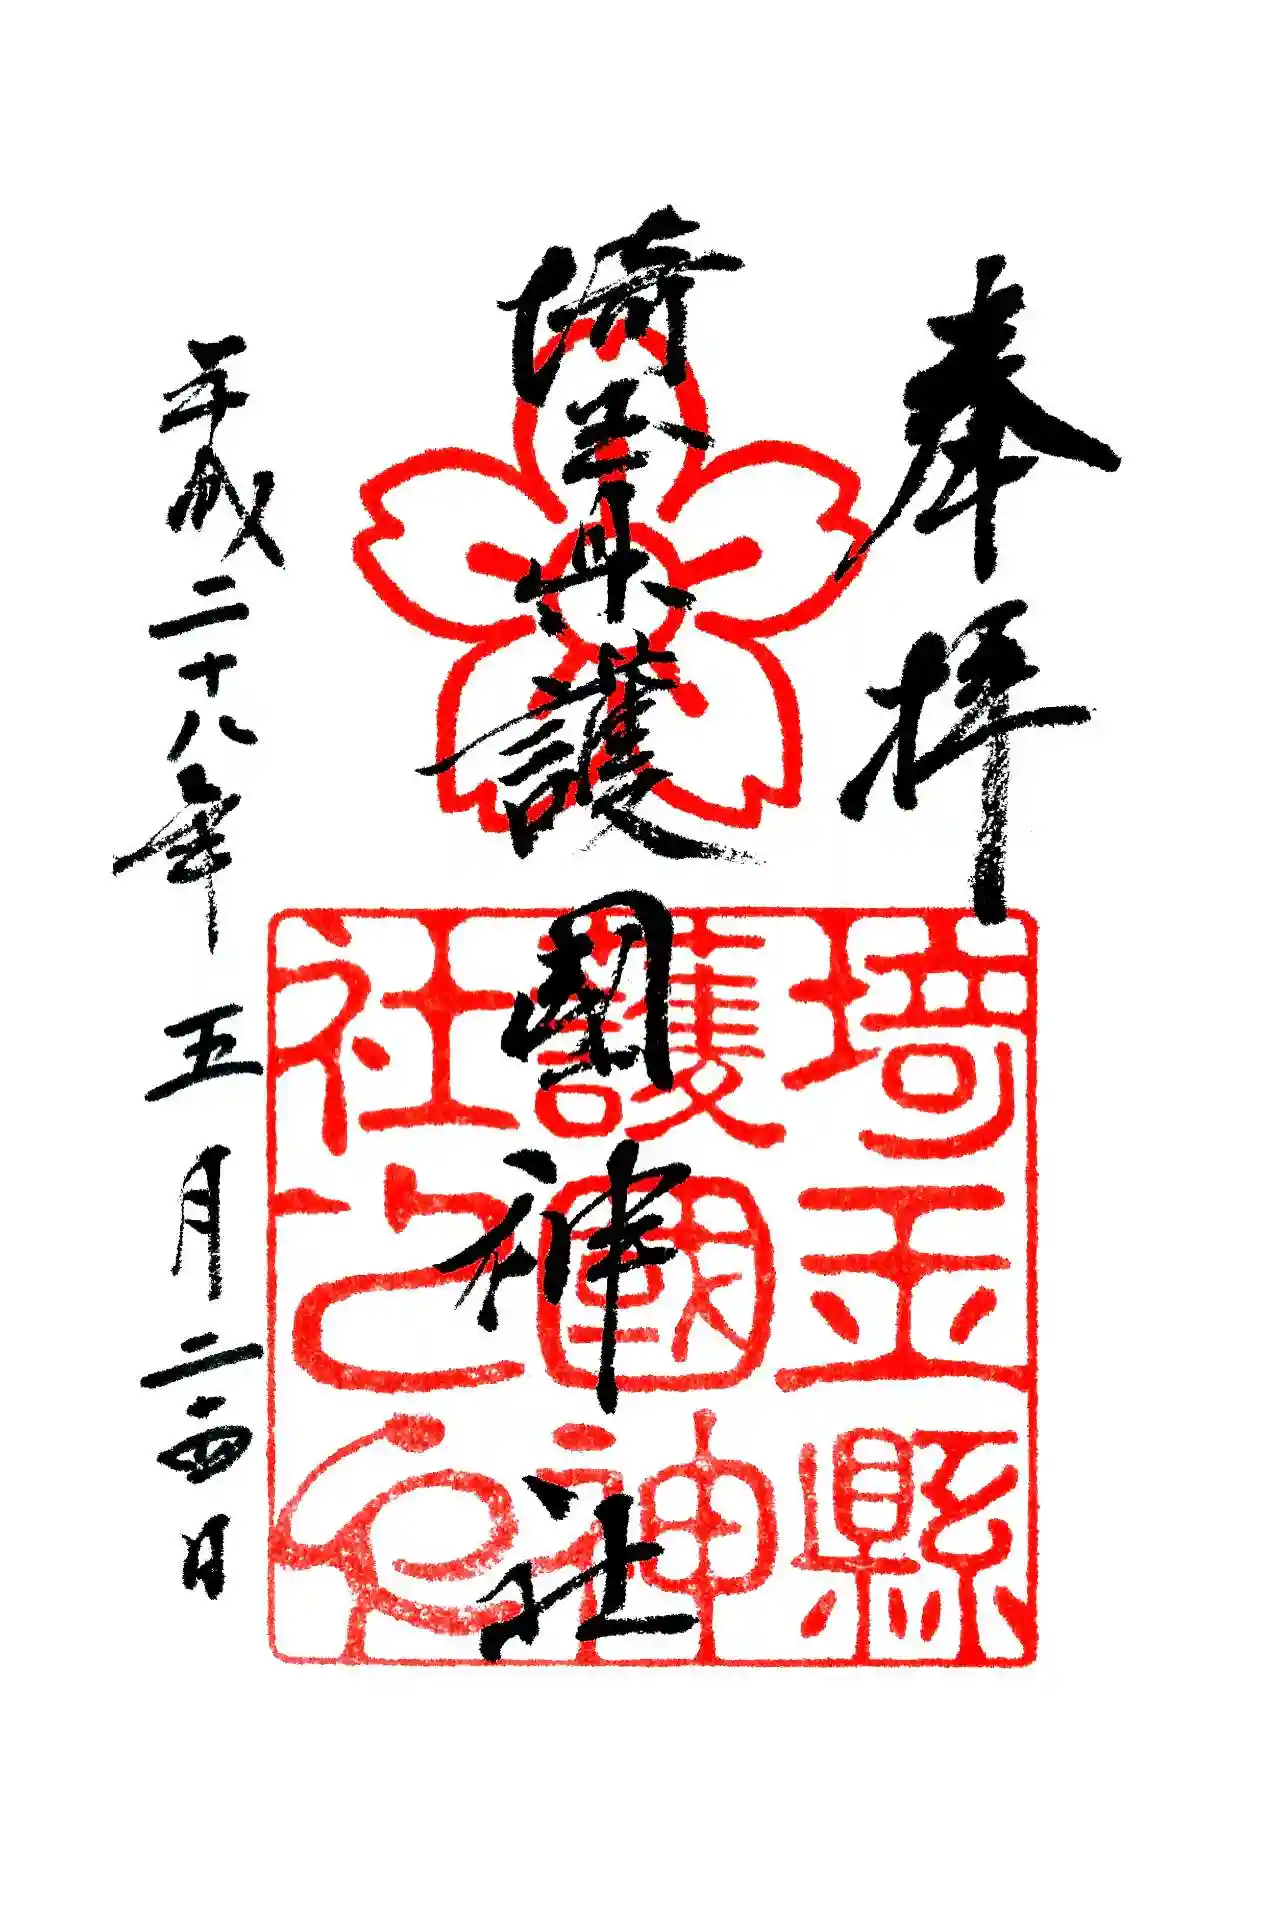 奉拝
埼玉県護國神社
埼玉縣
護國神
社之印
平成二十八年五月二十四日